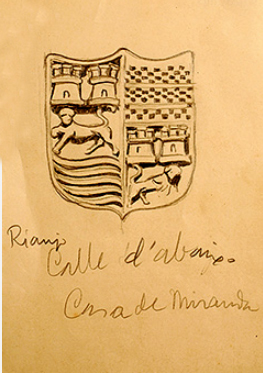 Rianjo
Calle d'abaixo
Casa de Miranda